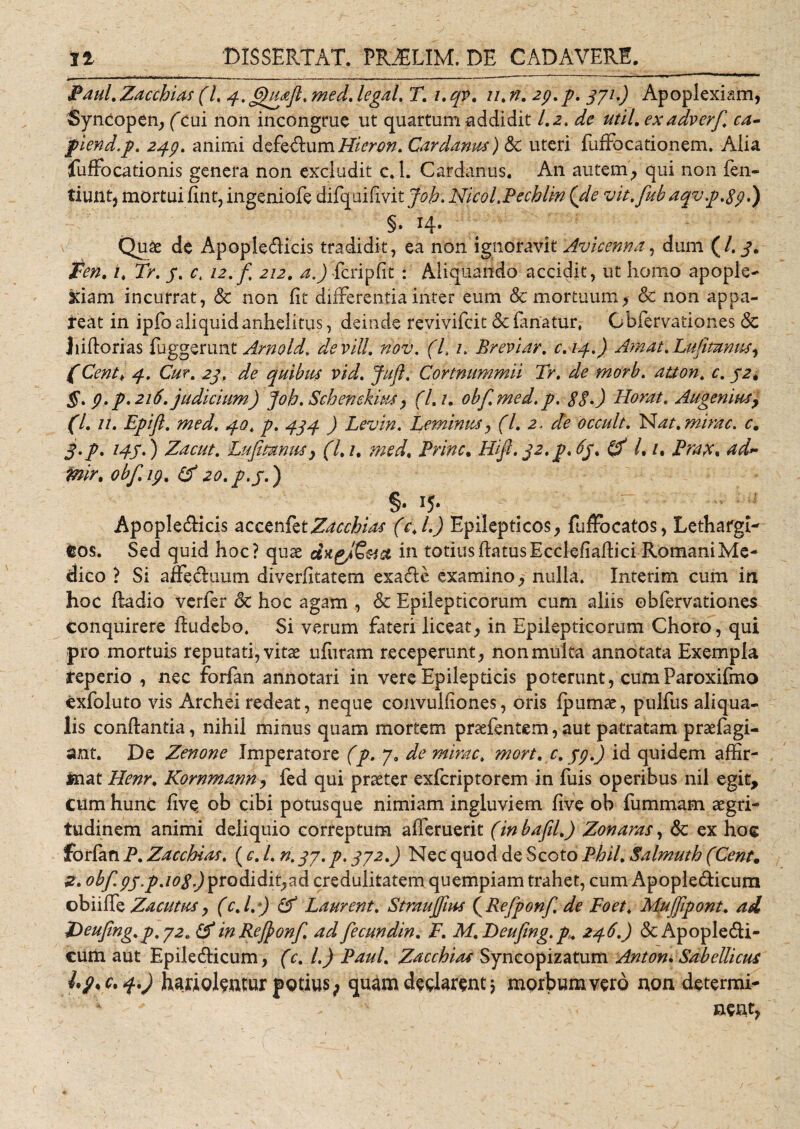 12 DISSERTAT. PRÆLIM. DE CADAVERE.
Paul. Zacchias (l. 4. Quæst. med. legal. T. 1. qv. 11. n. 29. p. 371.) Apoplexiam,
Syncopen, (cui non incongrue ut quartum addidit l. 2. de util. ex advers. ca-
piend. p. 249. animi defectum Hieron. Cardanus) & uteri suffocationem. Alia
suffocationis genera non excludit c. l. Cardanus. An autem, qui non sen-
tiunt, mortui sint, ingeniose disquisivit Joh. Nicol. Pechlin (de vit. sub aqv. p. 89.)
§. 14.
Quæ de Apoplecticis tradidit, ea non ignoravit Avicenna, dum (l. 3.
Fen. 1. Tr. 5. c. 12. f. 212. a.) scripsit : Aliquando accidit, ut homo apople-
xiam incurrat, & non sit differentia inter eum & mortuum, & non appa-
reat in ipso aliquid anhelitus, deinde reviviscit & sanatur. Observationes &
historias suggerunt Arnold. de vill. nov. (l. 1. Breviar. c. 14.) Amat. Lusitanus,
(Cent. 4. Cur. 23. de quibus vid. Just. Cortnummii Tr. de morb. atton. c. 52.
§. 9. p. 216. judicium) Joh. Schenckius, (l. 1. obs. med. p. 88.) Horat. Augenius,
(l. 11. Epist. med. 40. p. 434 ) Levin. Leminus, (l. 2. de occult. Nat. mirac. c.
3. p. 145.) Zacut. Lusitanus, (l. 1. med. Princ. Hist. 32. p. 65. & l. 1. Prax. ad-
mir. obs. 19. & 20. p. 5.)
§. 15.
Apoplecticis accenset Zacchias (c. l.) Epilepticos, suffocatos, Lethargi-
cos. Sed quid hoc? quæ ἀκρίβεια in totius status Ecclesiastici Romani Me-
dico ? Si affectuum diversitatem exacte examino, nulla. Interim cum in
hoc stadio verser & hoc agam , & Epilepticorum cum aliis observationes
conquirere studebo. Si verum fateri liceat, in Epilepticorum Choro, qui
pro mortuis reputati, vitæ usuram receperunt, non multa annotata Exempla
reperio , nec forsan annotari in vere Epilepticis poterunt, cum Paroxismo
exsoluto vis Archei redeat, neque convulsiones, oris spumæ, pulsus aliqua-
lis constantia, nihil minus quam mortem præsentem, aut patratam præsagi-
ant. De Zenone Imperatore (p. 7. de mirac. mort. c. 59.) id quidem affir-
mat Henr. Kornmann, sed qui præter exscriptorem in suis operibus nil egit,
cum hunc sive ob cibi potusque nimiam ingluviem sive ob summam ægri-
tudinem animi deliquio correptum asseruerit (in basil.) Zonaras, & ex hoc
forsan P. Zacchias. ( c. l. n. 37. p. 372.) Nec quod de Scoto Phil. Salmuth (Cent.
2. obs. 95. p. 108.) prodidit, ad credulitatem quempiam trahet, cum Apoplecticum
obiisse Zacutus, (c. l.) & Laurent. Straussius (Respons. de Foet. Mussipont. ad
Deusing. p. 72. & in Respons. ad fecundin. F. M. Deusing. p. 246.) & Apoplecti-
cum aut Epilecticum, (c. l.) Paul. Zacchias Syncopizatum Anton. Sabellicus
l. 9. c. 4.) hariolentur potius, quam declarent; morbum vero non determi-
nent,